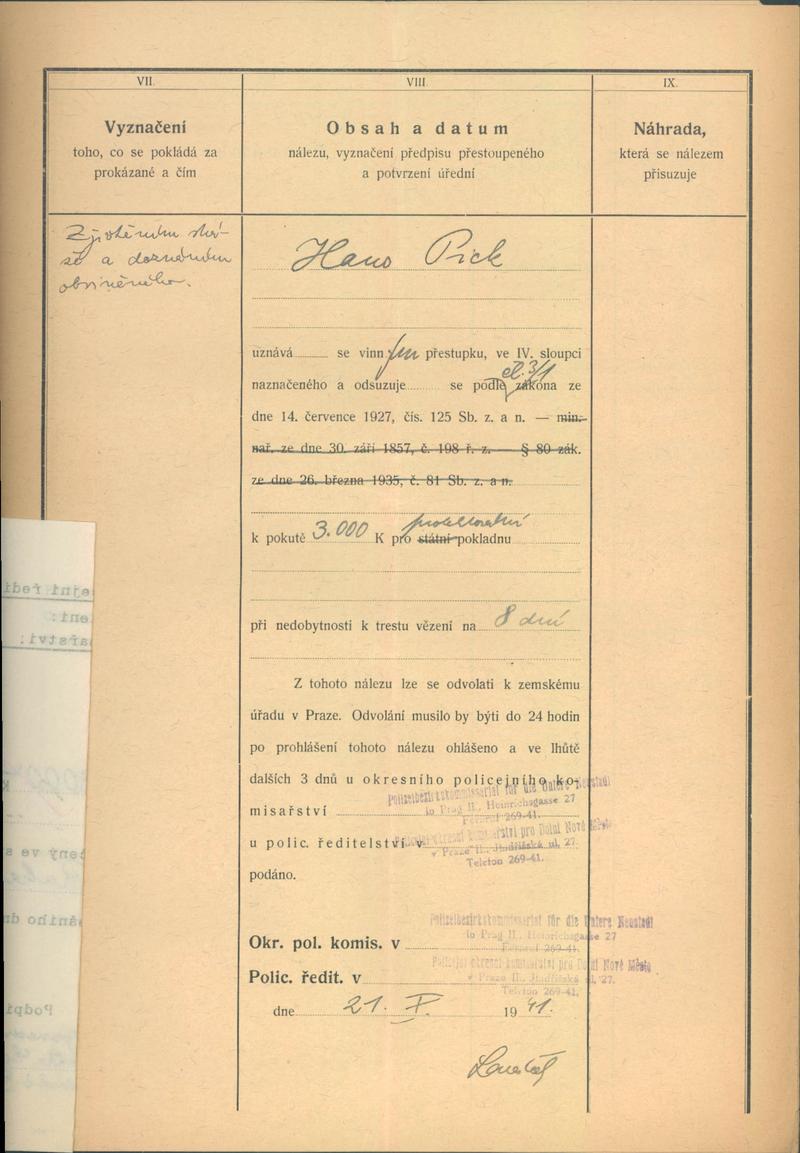 VII.
Vyznačení
toho, co se pokládá za
prokázané a čím
VIII.
Obsah a datum
nálezu, vyznačení předpisu přestoupeného
a potvrzení úřední
IX.
Náhrada,
která se nálezem
přisuzuje
a doznáním
obviněného.
Hans Pick
uznává se vinn ým přestupku, ve IV. sloupci
čl. 3/1
naznačeného a odsuzuje se podle zákona ze
dne 14. července 1927, čís. 125 Sb. z. a n. — min.
nař. ze dne 30. září 1857, č. 198 ř. z. — § 80 zák.
ze dne 26. března 1935, č. 81 Sb. z. a n.
k pokutě 3.000 K pro státní pokladnu
při nedobytnosti k trestu vězení na 8 dní
Z tohoto nálezu lze se odvolati k zemskému
úřadu v Praze. Odvolání musilo by býti do 24 hodin
po prohlášení tohoto nálezu ohlášeno a ve lhůtě
dalších 3 dnů u okresního policejního ko-
misařství
Polizeibezirkskommissariat für die Untere Neustadt
in Prag II., Heinrichsgasse 27
Fernruf 269-41.
u polic. ředitelství v
Policejní okresní komisařství pro Dolní Nové Město
v Praze II., Jindřišská ul. 27.
Telefon 269-41.
podáno.
Okr. pol. komis. v
Polizeibezirkskommissariat für die Untere Neustadt
in Prag II., Heinrichsgasse 27
Fernruf 269-41.
Polic. ředit. v
Policejní okresní komisařství pro Dolní Nové Město
v Praze II., Jindřišská ul. 27.
Telefon 269-41.
dne 21. X. 19 41.